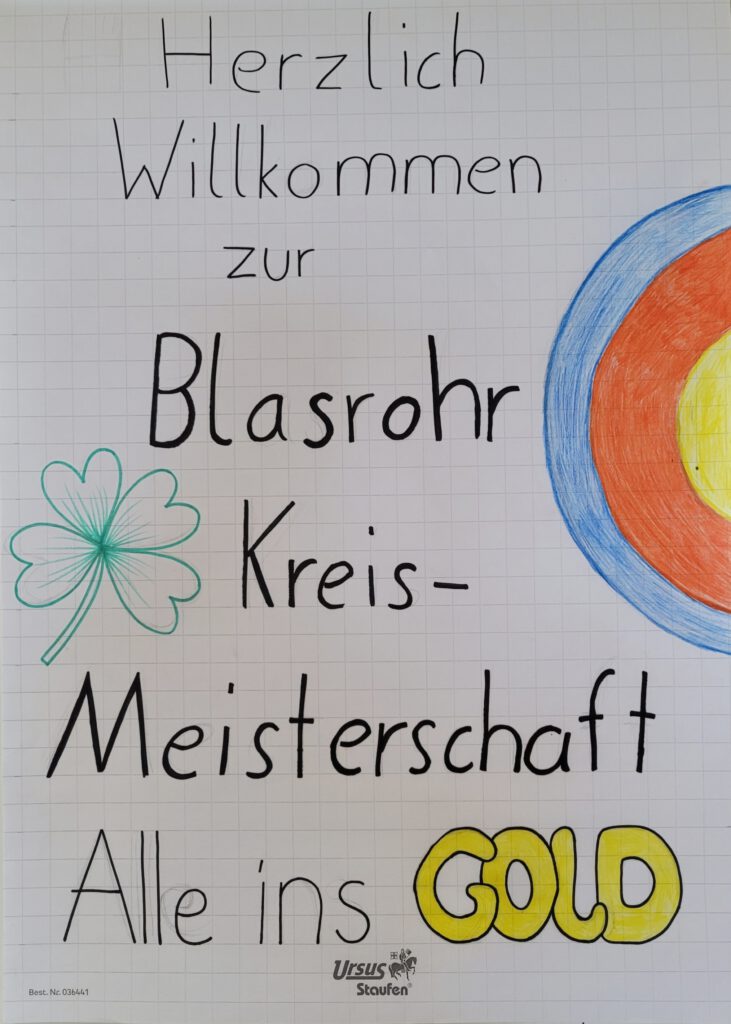 Herzlich
Willkommen
zur
Blasrohr
Kreis-
Meisterschaft
Alle ins GOLD
Ursus
Staufen®
Best. Nr. 036441